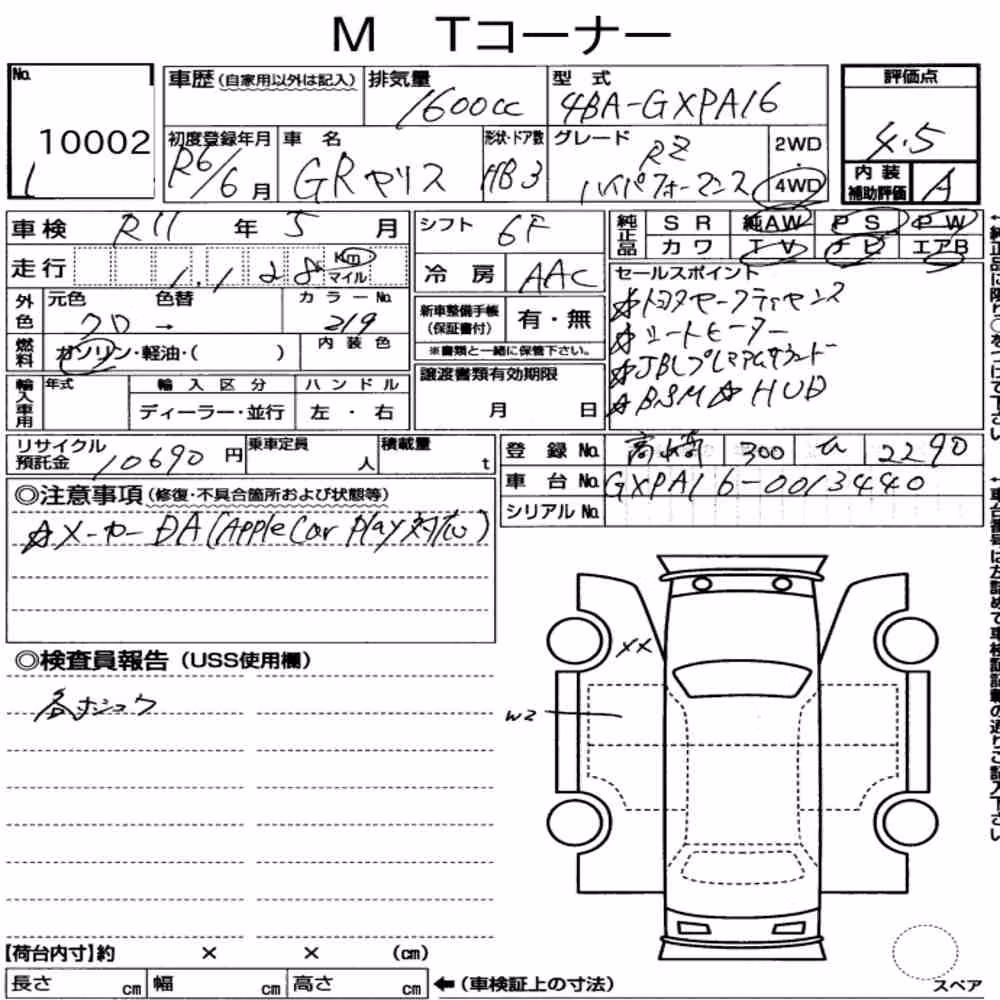 M Tコーナー
No. 10002
車歴(自家用以外は記入) 排気量 1600cc 型式 4BA-GXPA16
評価点 4.5
初度登録年月 R6/6月 車名 GRヤリス 形状・ドア数 HB3 グレード RZ ハイパフォーマンス 2WD 4WD
内装補助評価 A
車検 R11年5月
シフト 6F
純正品 SR 純AW PS PW
カワ TV ナビ エアB
走行 1.128 Km マイル
冷房 AAC
セールスポイント
☆トヨタセーフティセンス
☆シートヒーター
☆JBLプレミアムサウンド
☆BSM☆HUD
外色 元色 クロ → 色替 カラーNo. 219
新車整備手帳(保証書付) 有・無
※書類と一緒に保管下さい。
燃料 ガソリン・軽油・( ) 内装色
譲渡書類有効期限
月 日
輸入車用 年式 輸入区分 ハンドル
ディーラー・並行 左・右
リサイクル預託金 10690円 乗車定員 人 積載量 t
登録No. 300 2290
車台No. GXPA16-0013440
シリアルNo.
◎注意事項(修復・不具合箇所および状態等)
☆メーカーDA(Apple Car Play対応)
◎検査員報告(USS使用欄)
各ホシュウ
XX
W2
【荷台内寸】約 × × (cm)
長さ cm 幅 cm 高さ cm ←(車検証上の寸法)
スペア
↓純正品に限り○をつけて下さい
↓車台番号は左詰めで車検証記載の通りご記入下さい